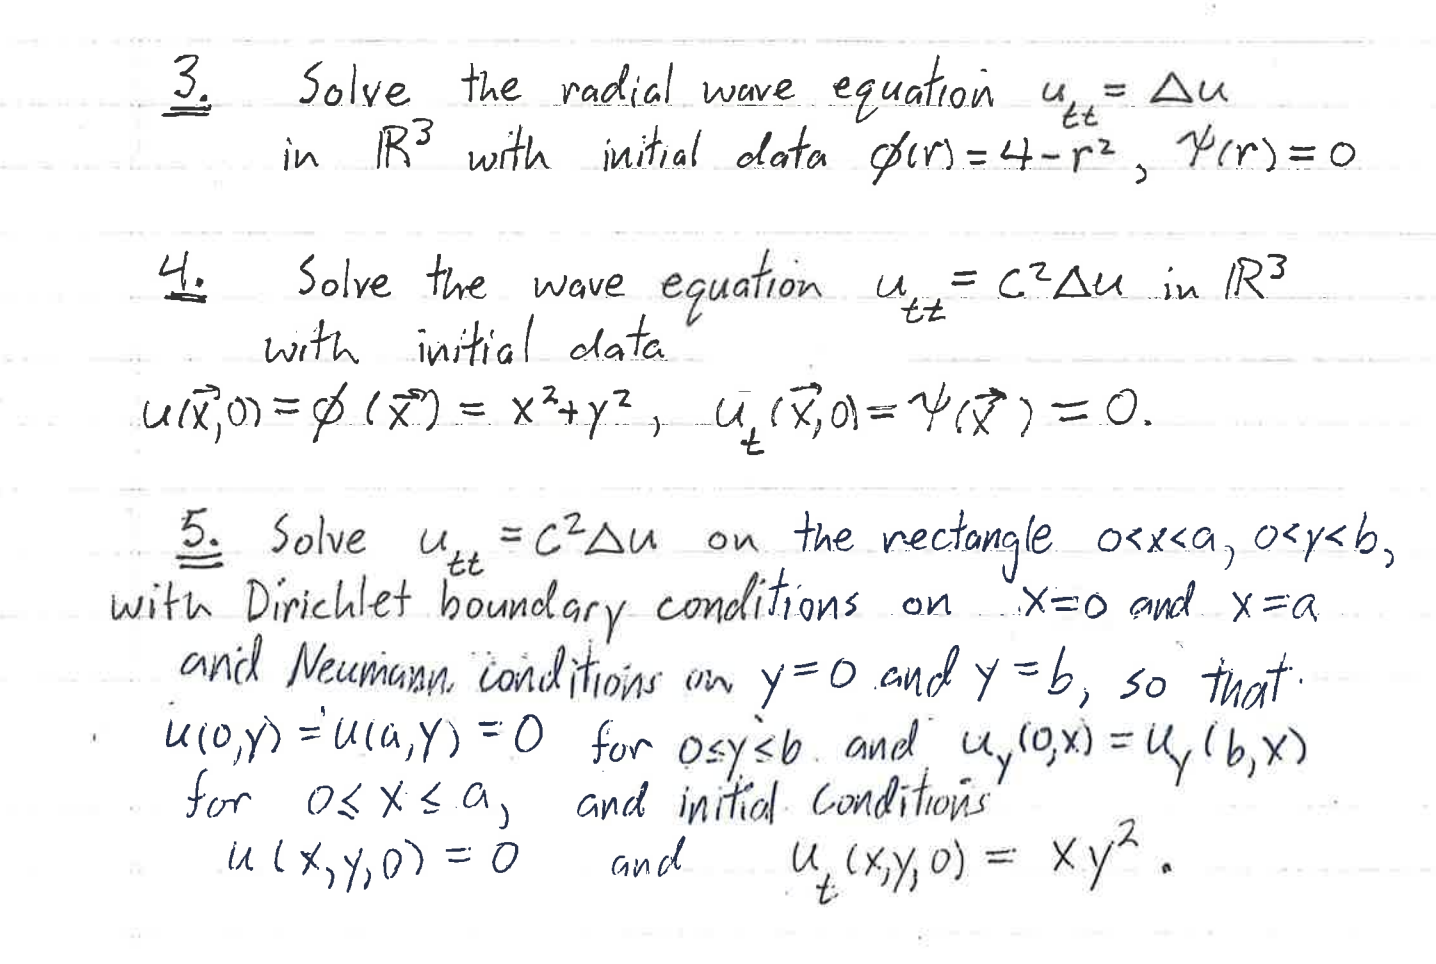 3. Solve the radial wave equation u_tt = Δu
in ℝ³ with initial data ϕ(r) = 4 - r², ψ(r) = 0
4. Solve the wave equation u_tt = c²Δu in ℝ³
with initial data
u(x⃗,0) = ϕ(x⃗) = x²+y², u_t(x⃗,0) = ψ(x⃗) = 0.
5. Solve u_tt = c²Δu on the rectangle 0<x<a, 0<y<b,
with Dirichlet boundary conditions on x=0 and x=a
and Neumann conditions on y=0 and y=b, so that
u(0,y) = u(a,y) = 0 for 0≤y≤b and u_y(0,x) = u_y(b,x)
for 0≤x≤a, and initial conditions
u(x,y,0) = 0 and u_t(x,y,0) = xy².